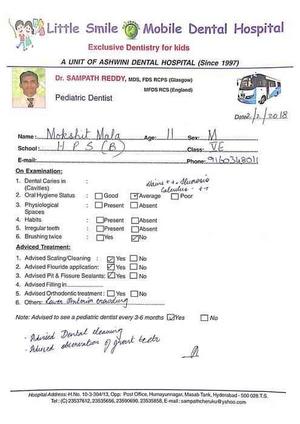 Little Smile Mobile Dental Hospital
Exclusive Dentistry for kids
A UNIT OF ASHWINI DENTAL HOSPITAL (Since 1997)
Dr. SAMPATH REDDY, MDS, FDS RCPS (Glasgow)
MFDS RCS (England)
Pediatric Dentist
Date: 2/2/2018
Name: Mokshit Mala Age: 11 Sex: M
School: H P S (B) Class: VE
E-mail: Phone: 9160348011
On Examination:
1. Dental Caries in (Cavities) : Stains ++
Calculus - ++
2. Oral Hygiene Status : Good Average Poor
3. Physiological Spaces : Present Absent
4. Habits : Present Absent
5. Irregular teeth : Present Absent
6. Brushing twice : Yes No
Adviced Treatment:
1. Advised Scaling/Cleaning : Yes No
2. Advised Flouride application: Yes No
3. Advised Pit & Fissure Sealants: Yes No
4. Advised Filling in
5. Advised Orthodontic treatment : Yes No
6. Others: Lower Anterior crowding
Note: Advised to see a pediatric dentist every 3-6 months Yes No
- Advised Dental cleaning
- Advised observation of front teeth
Hospital Address: H.No. 10-3-304/13, Opp: Post Office, Humayunnagar, Masab Tank, Hyderabad - 500 028 T.S.
Tel: (C) 23537612, 23535656, 23590690, 23535858, E-mail : sampathcheruku@yahoo.com